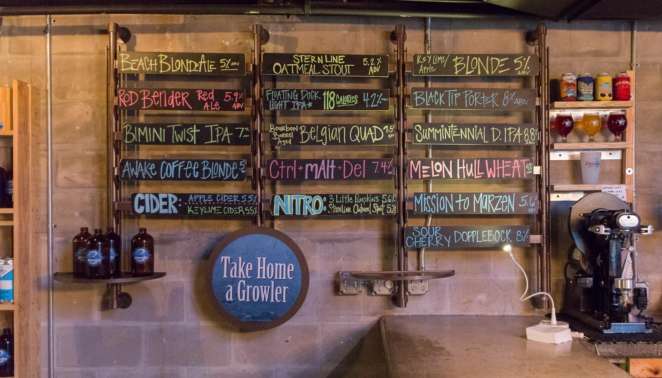 BEACH BLONDE ALE 5% ABV
RED BENDER RED ALE 5.9% ABV
BIMINI TWIST IPA
AWAKE COFFEE BLONDE
CIDER: APPLE CIDER 5.5%
KEYLIME CIDER 5.5%
STERN LINE OATMEAL STOUT 5.2% ABV
FLOATING DOCK LIGHT IPA 118 CALORIES 4.2%
Bourbon Barrel Aged BELGIAN QUAD
Ctrl + MAlt + Del 7.4%
NITRO: 3 Little Pumpkins 5.6
Sternline Oatmeal Stout
KEY LIME/ Apple BLONDE 5%
BLACK TIP PORTER 8%
SUMMINTENNIAL D. IPA 8.8%
MELON HULL WHEAT
MISSION TO MARZEN 5.6
SOUR CHERRY DOPPLEBOCK 8%
Take Home
a Growler